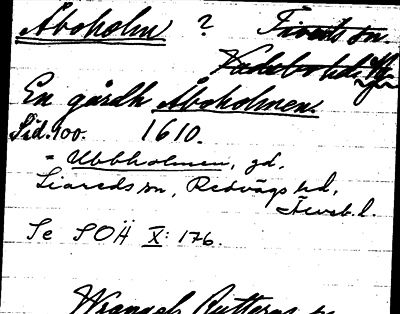 Åboholm ? Tiveds sn.
Vadsbo hd. Vg.
En gårdh Åboholmen.
Sid. 100. 1610.
= Ubbholmen, gd.
Liareds sn, Redvägs hd,
Älvsb. l.
Se SOÄ X: 176.
Wrangels